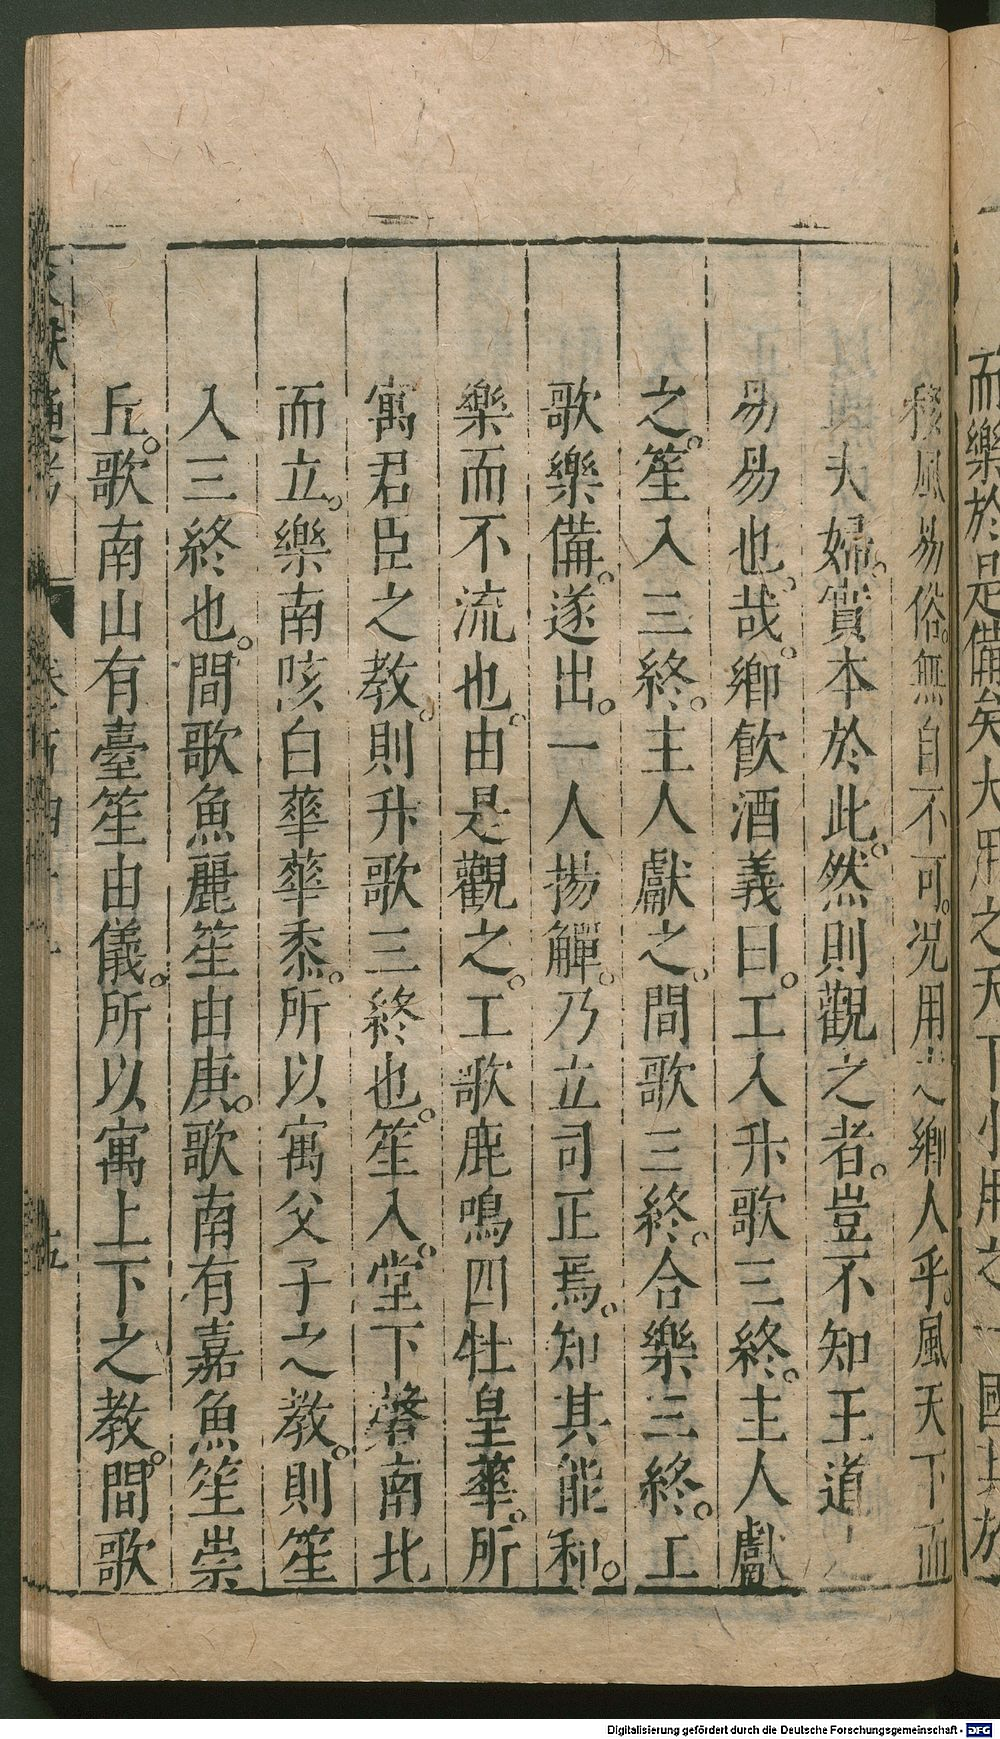 而樂於是備矣大用之天下小用之一國其於
移風易俗。無自不可。况用之鄉人乎。風天下而
夫婦。實本於此。然則觀之者。豈不知王道之
易易也。哉。鄉飲酒義曰。工入升歌三終。主人獻
之。笙入三終。主人獻之。間歌三終。合樂三終。工
歌樂備。遂出。一人揚觶。乃立司正焉。知其能和。
樂而不流也。由是觀之。工歌鹿鳴四牡皇華。所
寓君臣之教。則升歌三終也。笙入。堂下磬南北
而立。樂南陔白華華黍。所以寓父子之教。則笙
入三終也。間歌魚麗笙由庚。歌南有嘉魚笙崇
丘。歌南山有臺笙由儀。所以寓上下之教。間歌
文獻通考
五
Digitalisierung gefördert durch die Deutsche Forschungsgemeinschaft - DFG